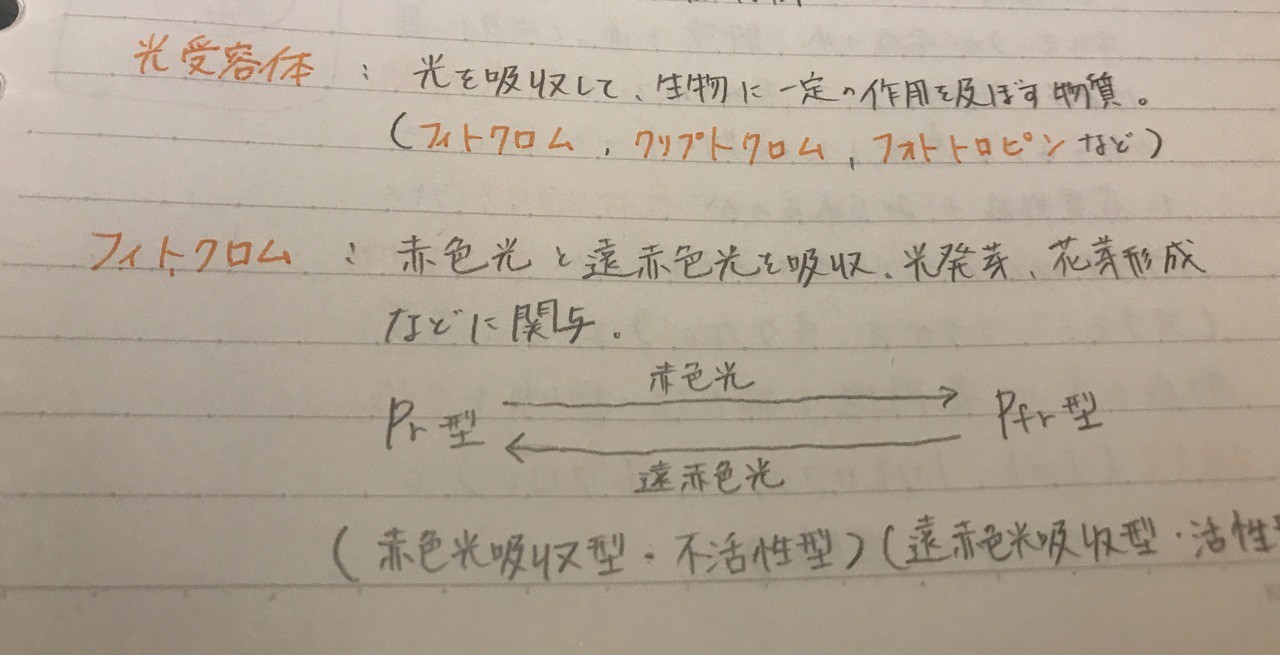 光受容体 : 光を吸収して、生物に一定の作用を及ぼす物質。
(フィトクロム, クリプトクロム, フォトトロピン など)
フィトクロム : 赤色光と遠赤色光を吸収、光発芽、花芽形成
などに関与。
赤色光
Pr型 Pfr型
遠赤色光
(赤色光吸収型・不活性型)(遠赤色光吸収型・活性